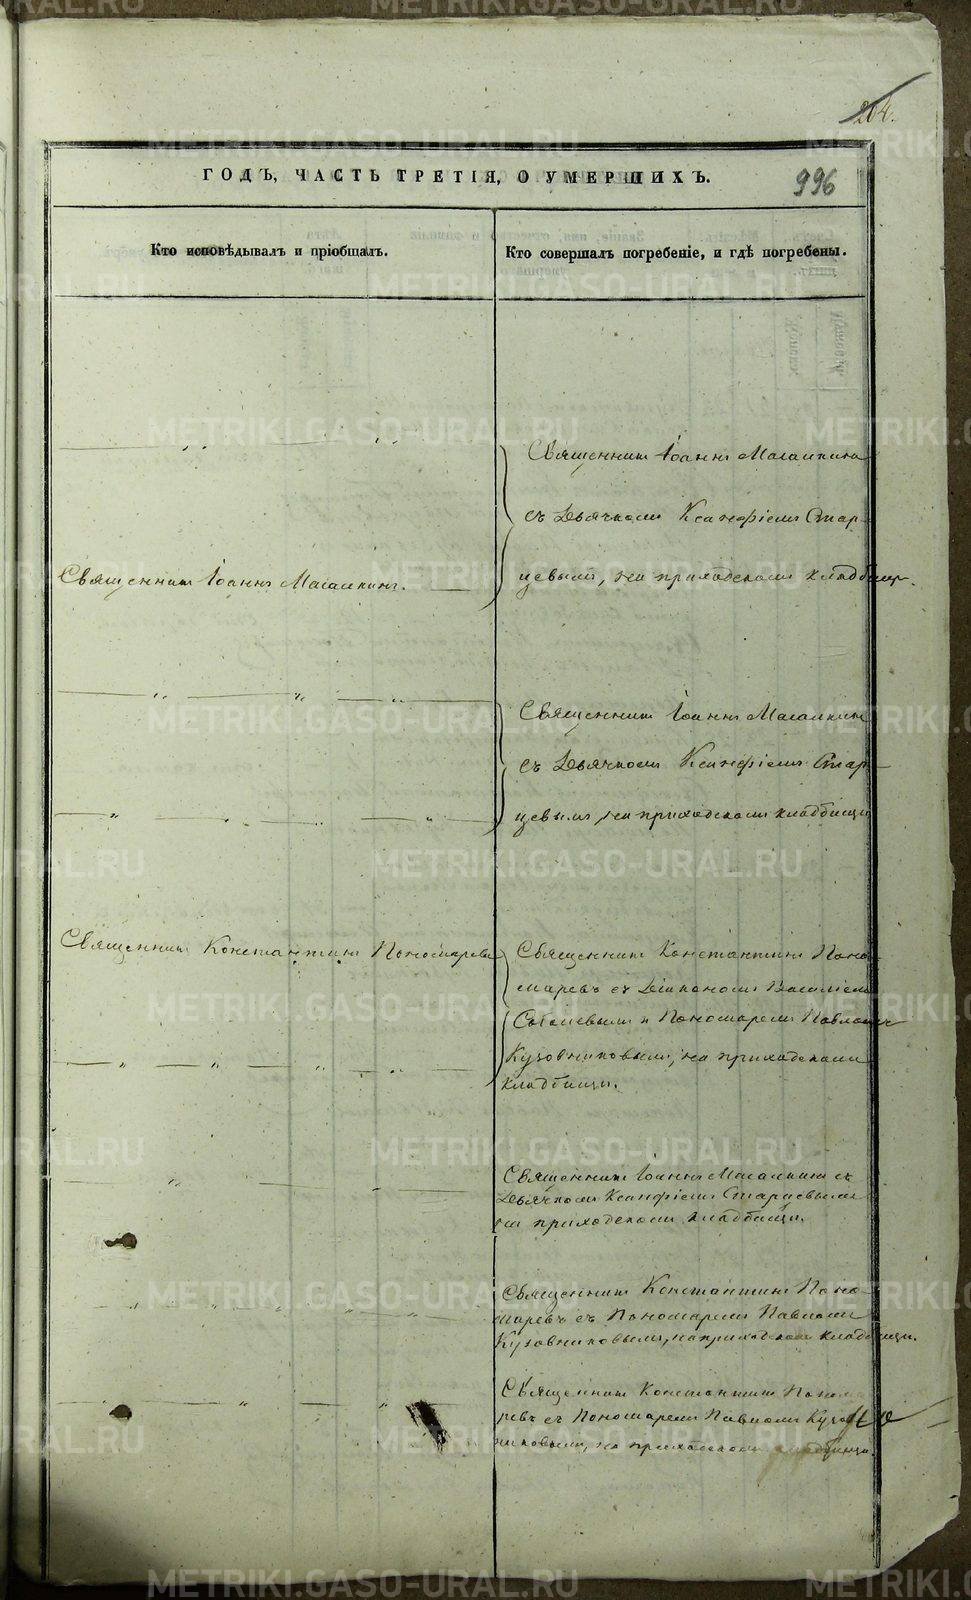 204.
ГОДЪ, ЧАСТЬ ТРЕТІЯ, О УМЕРШИХЪ.
996
Кто исповѣдывалъ и пріобщалъ.
Кто совершалъ погребеніе, и гдѣ погребены.
Священникъ Іоаннъ Масалкинъ
съ Дьячкомъ Ксанфіемъ Стар-
цевымъ, на приходскомъ кладбищѣ.
Священникъ Іоаннъ Масалкинъ.
Священникъ Іоаннъ Масалкинъ
съ Дьячкомъ Ксанфіемъ Стар-
цевымъ, на приходскомъ кладбищѣ
Священникъ Константинъ Пономаревъ
Священникъ Константинъ Поно-
маревъ съ Діакономъ Василіемъ
и Пономаремъ Павломъ
Кузовниковымъ, на приходскомъ
кладбищѣ.
Священникъ Іоаннъ Масалкинъ съ
Дьячкомъ Ксанфіемъ Старцевымъ
на приходскомъ кладбищѣ.
Священникъ Константинъ Поно-
маревъ съ Пономаремъ Павломъ
Кузовниковымъ, на приходскомъ кладбищѣ.
Священникъ Константинъ Понома
ревъ съ Пономаремъ Павломъ Кузов
никовымъ, на приходскомъ кладбищѣ.
METRIKI.GASO-URAL.RU